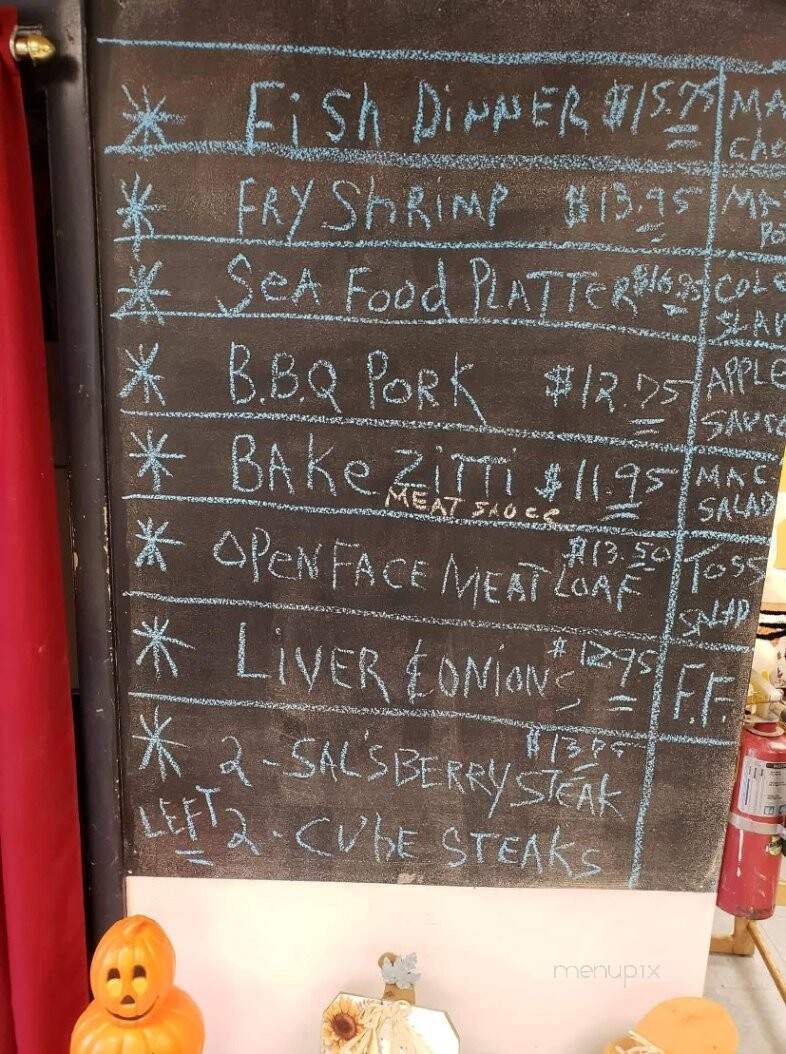 * Fish DINNER $15.75
MA
che
* FRY ShRIMP $13.95
PO
* SeA Food PLATTeR $16.95
COLe
SLAW
* B.B.Q PORK $12.75
APPLE
SAUCE
* BAKe ZiTTi $11.95
MEAT SAUCE
MAC
SALAD
* OPeN FACE MEAT LOAF $13.50
TOSS
SALAD
* LiVER & ONIONS $12.95
F.F.
* 2-SAL'SBERRY STEAK
LEFT 2-CUbE STEAKS
menupix